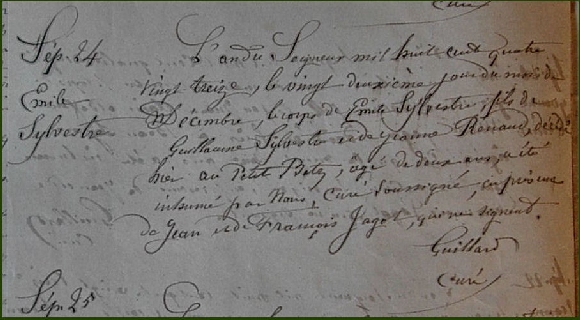 Curé
Sép. 24
Emile
Sylvestre
L'an du Seigneur mil huit cent quatre
vingt treize, le vingt deuxième jour du mois de
Décembre, le corps de Emile Sylvestre, fils de
Guillaume Sylvestre et de Jeanne Renaud, décédé
hier au Petit , âgé de deux ans, a été
inhumé par Nous, Curé soussigné, en présence
de Jean et de François Jagot, qui ne signent.
Guillard
Curé
Sép. 25